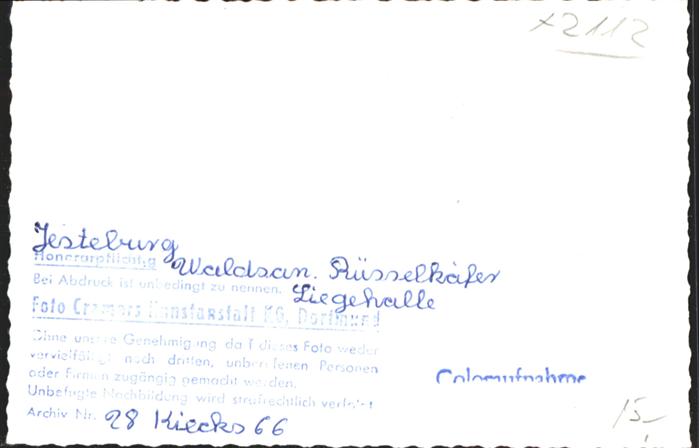 x2112
Jesteburg
Honorarpflichtig Waldsan. Rüsselkäfer
Bei Abdruck ist unbedingt zu nennen. Liegehalle
Foto Cramers Kunstanstalt KG, Dortmund
Ohne unsere Genehmigung darf dieses Foto weder
vervielfältigt noch dritten, unberufenen Personen
oder Firmen zugängig gemacht werden.
Unbefugte Nachbildung wird strafrechtlich verfolgt
Archiv Nr. 28 Kiecks 66
Coloraufnahme
15-